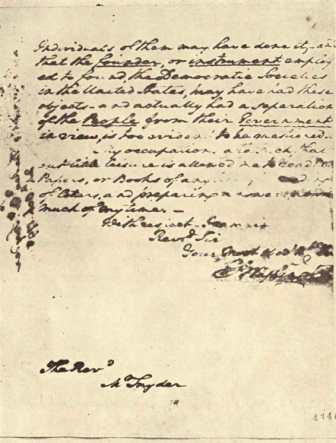 Individuals of them may have done it, and
that the founder, or instrument employ
ed to found, the Democratic Societies
in the United States, may have had these
objects — and actually had a separation
of the People from their Government
in view, is too evident to be questioned.
My occupations are such, that
but little leisure is allowed me to read News
Papers, or Books of any
of letters, and preparing
much of my time. —
With respect, I am
Rev.d Sir
Your Most Obed.t
G.o Washington
The Rev.d
M.r Snyder